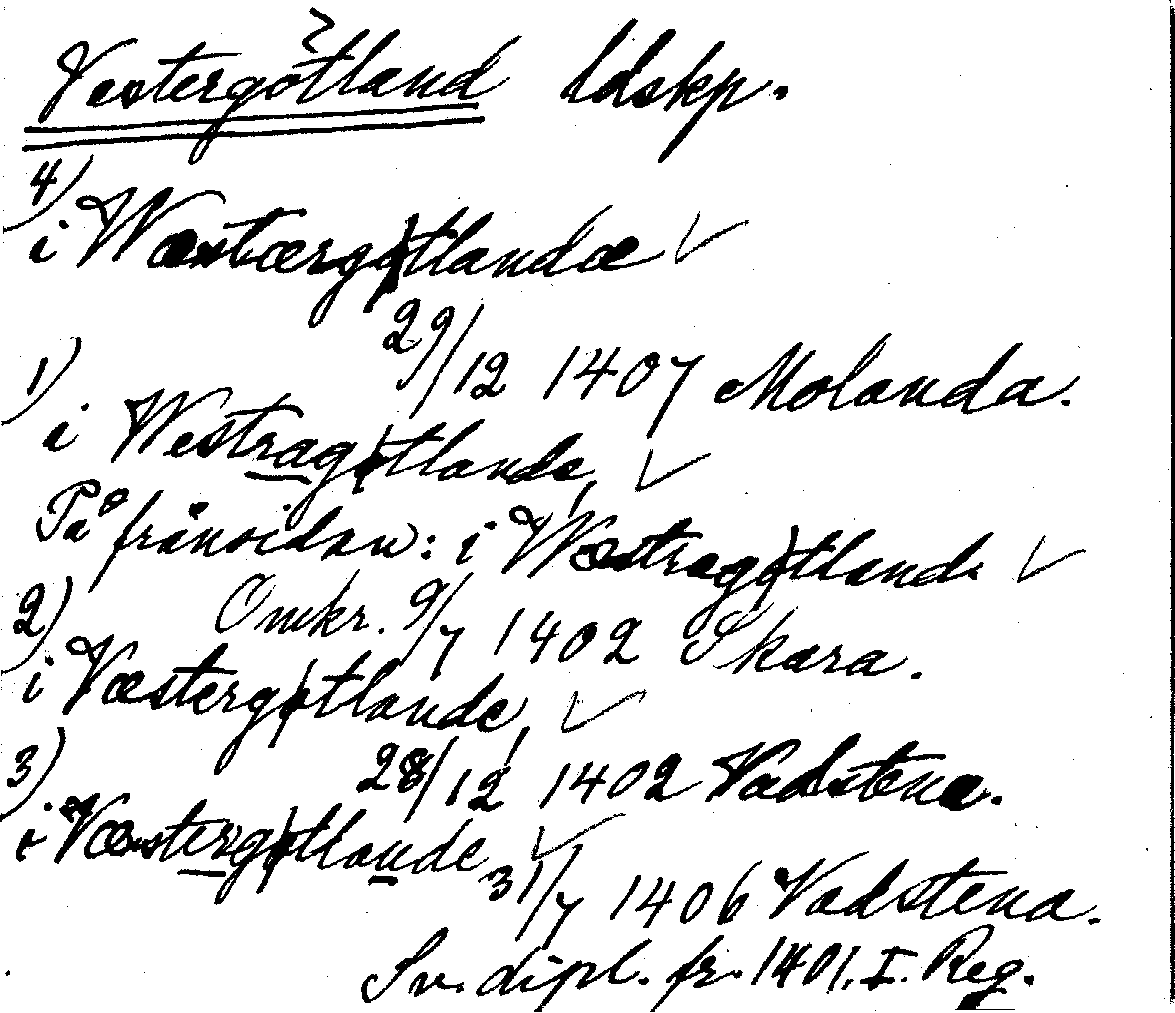 Vestergötland ldskp.
4)
i Wæstærgøtlandæ
29/12 1407 Molanda.
1)
i Westragøtlande,
På frånsidan: i Wæstragøtlande
2) Omkr. 9/7 1402 Skara.
i Væstergøtlande,
3) 28/12 1402 Vadstena.
i Væstergøtlande, 31/7 1406 Vadstena.
Sv. dipl. fr. 1401. I. Reg.